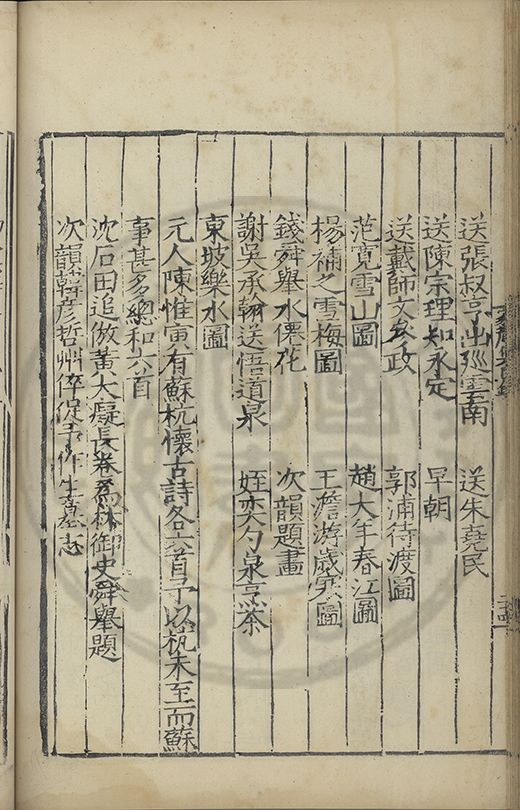 送張叔亨出巡雲南　送朱堯民
送陳宗理知永定　早朝
送戴師文叅政　郭浦待渡圖
范寛雪山圖　趙大年春江圖
楊補之雪梅圖　王澹游歲寒圖
錢舜舉水僊花　次韻題畫
謝吳承翰送悟道泉　姪奕勺泉烹茶
東坡樂水圖
元人陳惟寅有蘇杭懷古詩各六首予以杭未至而蘇
事甚多總和六首
沈石田追倣黃大癡長卷爲林御史舜舉題
次韻韓彦哲州倅促予作生墓志